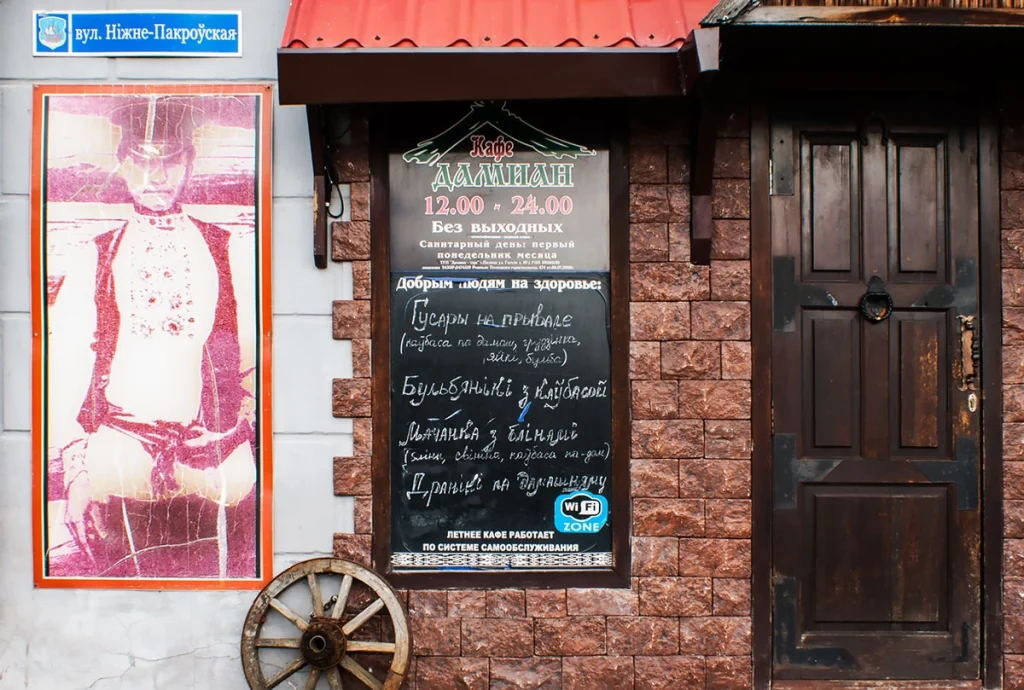 вул. Ніжне-Пакроўская
Кафе
ДАМИАН
12.00 и 24.00
Без выходных
Санитарный день: первый
понедельник месяца
Добрым людям на здоровье:
Гусары на прывале
(каўбаса па дамаш, грудзінка,
яйкі, бульба)
Бульбянікі з каўбасой
Мачанка з блінамі
(бліны, свініна, каўбаса па-дам)
Дранікі па дамашняму
Wi Fi
ZONE
ЛЕТНЕЕ КАФЕ РАБОТАЕТ
ПО СИСТЕМЕ САМООБСЛУЖИВАНИЯ